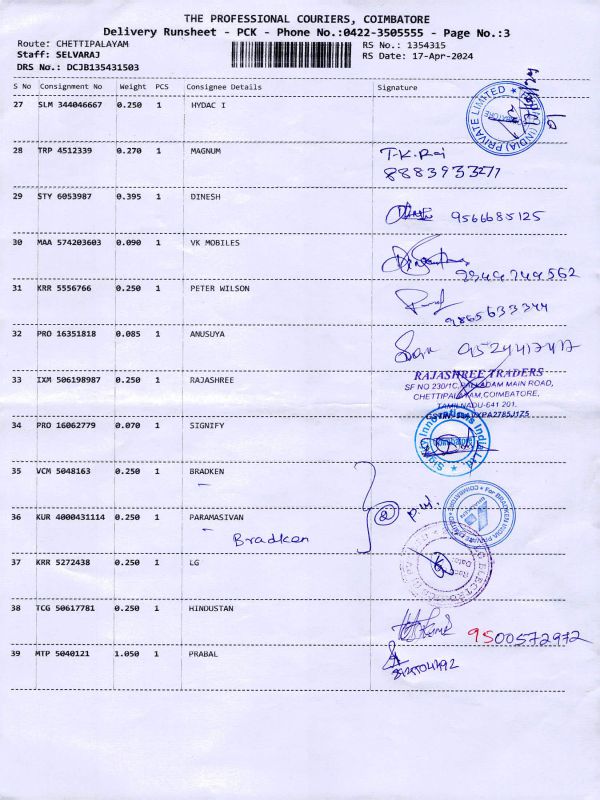 THE PROFESSIONAL COURIERS, COIMBATORE
Delivery Runsheet - PCK - Phone No.:0422-3505555 - Page No.:3
Route: CHETTIPALAYAM
RS No.: 1354315
Staff: SELVARAJ
RS Date: 17-Apr-2024
DRS No.: DCJB135431503
S No Consignment No Weight PCS Consignee Details Signature
27 SLM 344046667 0.250 1 HYDAC I
(INDIA) PRIVATE LIMITED
28 TRP 4512339 0.270 1 MAGNUM T.K.Raj
8883933277
29 STY 6053987 0.395 1 DINESH
9566685125
30 MAA 574203603 0.090 1 VK MOBILES
31 KRR 5556766 0.250 1 PETER WILSON
9865633344
32 PRO 16351818 0.085 1 ANUSUYA
33 IXM 506198987 0.250 1 RAJASHREE
RAJASHREE TRADERS
SF NO 230/1C, PALLADAM MAIN ROAD,
CHETTIPALAYAM, COIMBATORE,
TAMILNADU-641 201.
34 PRO 16062779 0.070 1 SIGNIFY
Innovations India Ltd.
35 VCM 5048163 0.250 1 BRADKEN
36 KUR 4000431114 0.250 1 PARAMASIVAN
Bradken
(2)
For BRADKEN INDIA PRIVATE LIMITED
37 KRR 5272438 0.250 1 LG
38 TCG 50617781 0.250 1 HINDUSTAN
9500572972
39 MTP 5040121 1.050 1 PRABAL